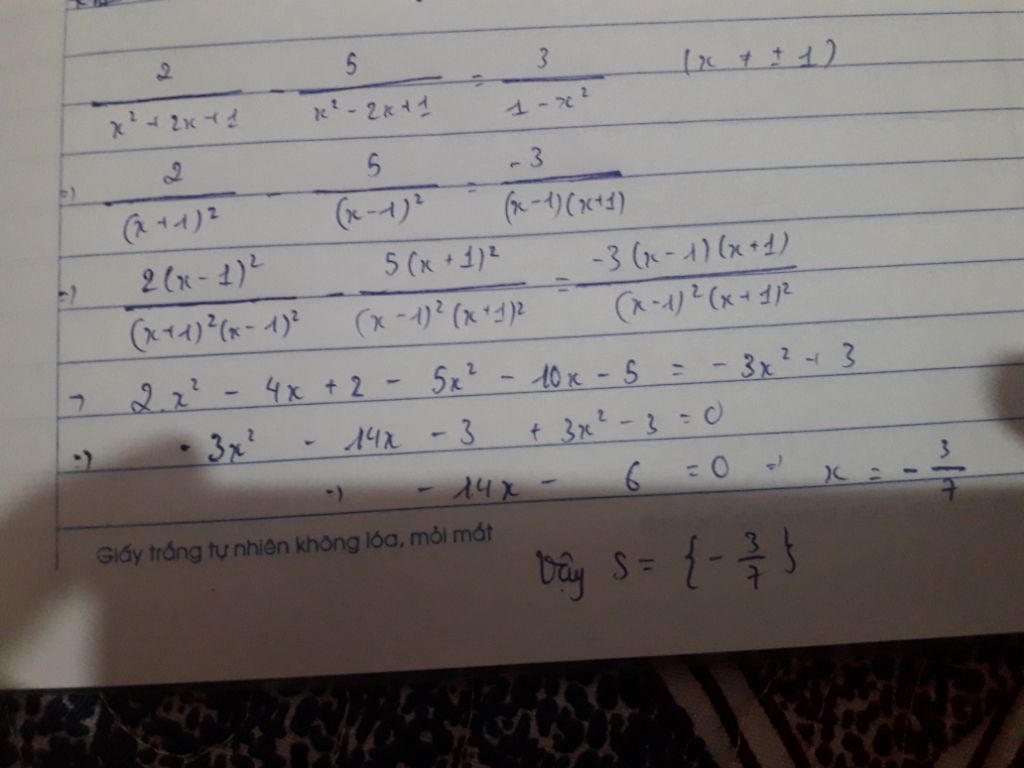 2/(x² + 2x + 1) - 5/(x² - 2x + 1) = 3/(1 - x²) (x ≠ ± 1)
=) 2/(x+1)² - 5/(x-1)² = -3/((x-1)(x+1))
=) 2(x-1)²/((x+1)²(x-1)²) - 5(x+1)²/((x-1)²(x+1)²) = -3(x-1)(x+1)/((x-1)²(x+1)²)
=) 2x² - 4x + 2 - 5x² - 10x - 5 = -3x² + 3
=) -3x² - 14x - 3 + 3x² - 3 = 0
=) -14x - 6 = 0 =) x = -3/7
Giấy trắng tự nhiên không lóa, mỏi mắt
Vậy S = {-3/7}